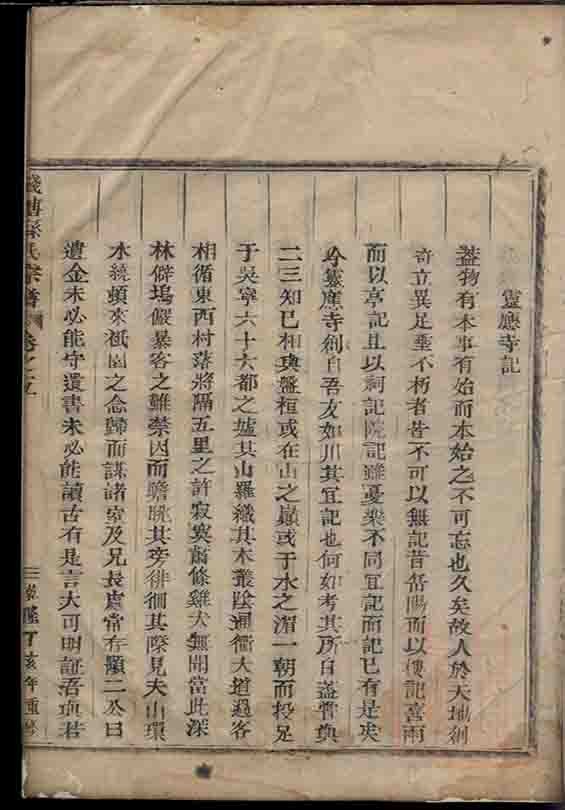 靈應寺記
蓋物有本事有始而本始之不可忘也久矣故人於天地創
奇立異足垂不朽者皆不可以無記昔岳陽而以樓記喜雨
而以亭記且以祠記院記雖憂樂不同宜記而記已有是矣
今靈應寺創自吾友如川其宜記也何如考其所自蓋嘗與
二三知已相與盤桓或在山之巔或于水之湄一朝而投足
于吳寧六十六都之墟其山羅織其木叢陰通衢大道過客
相循東西村落將隔五里之許寂寞蕭條雞犬無聞當此深
林僻塢儼暴客之難禁因而瞻眺其旁徘徊其際見夫山環
水繞頓來祇園之念歸而謀諸室及兄長處常存顯二公曰
遺金未必能守遺書未必能讀古有是言大可明証吾與若
孫氏宗譜 卷之五 乾隆丁亥年重修